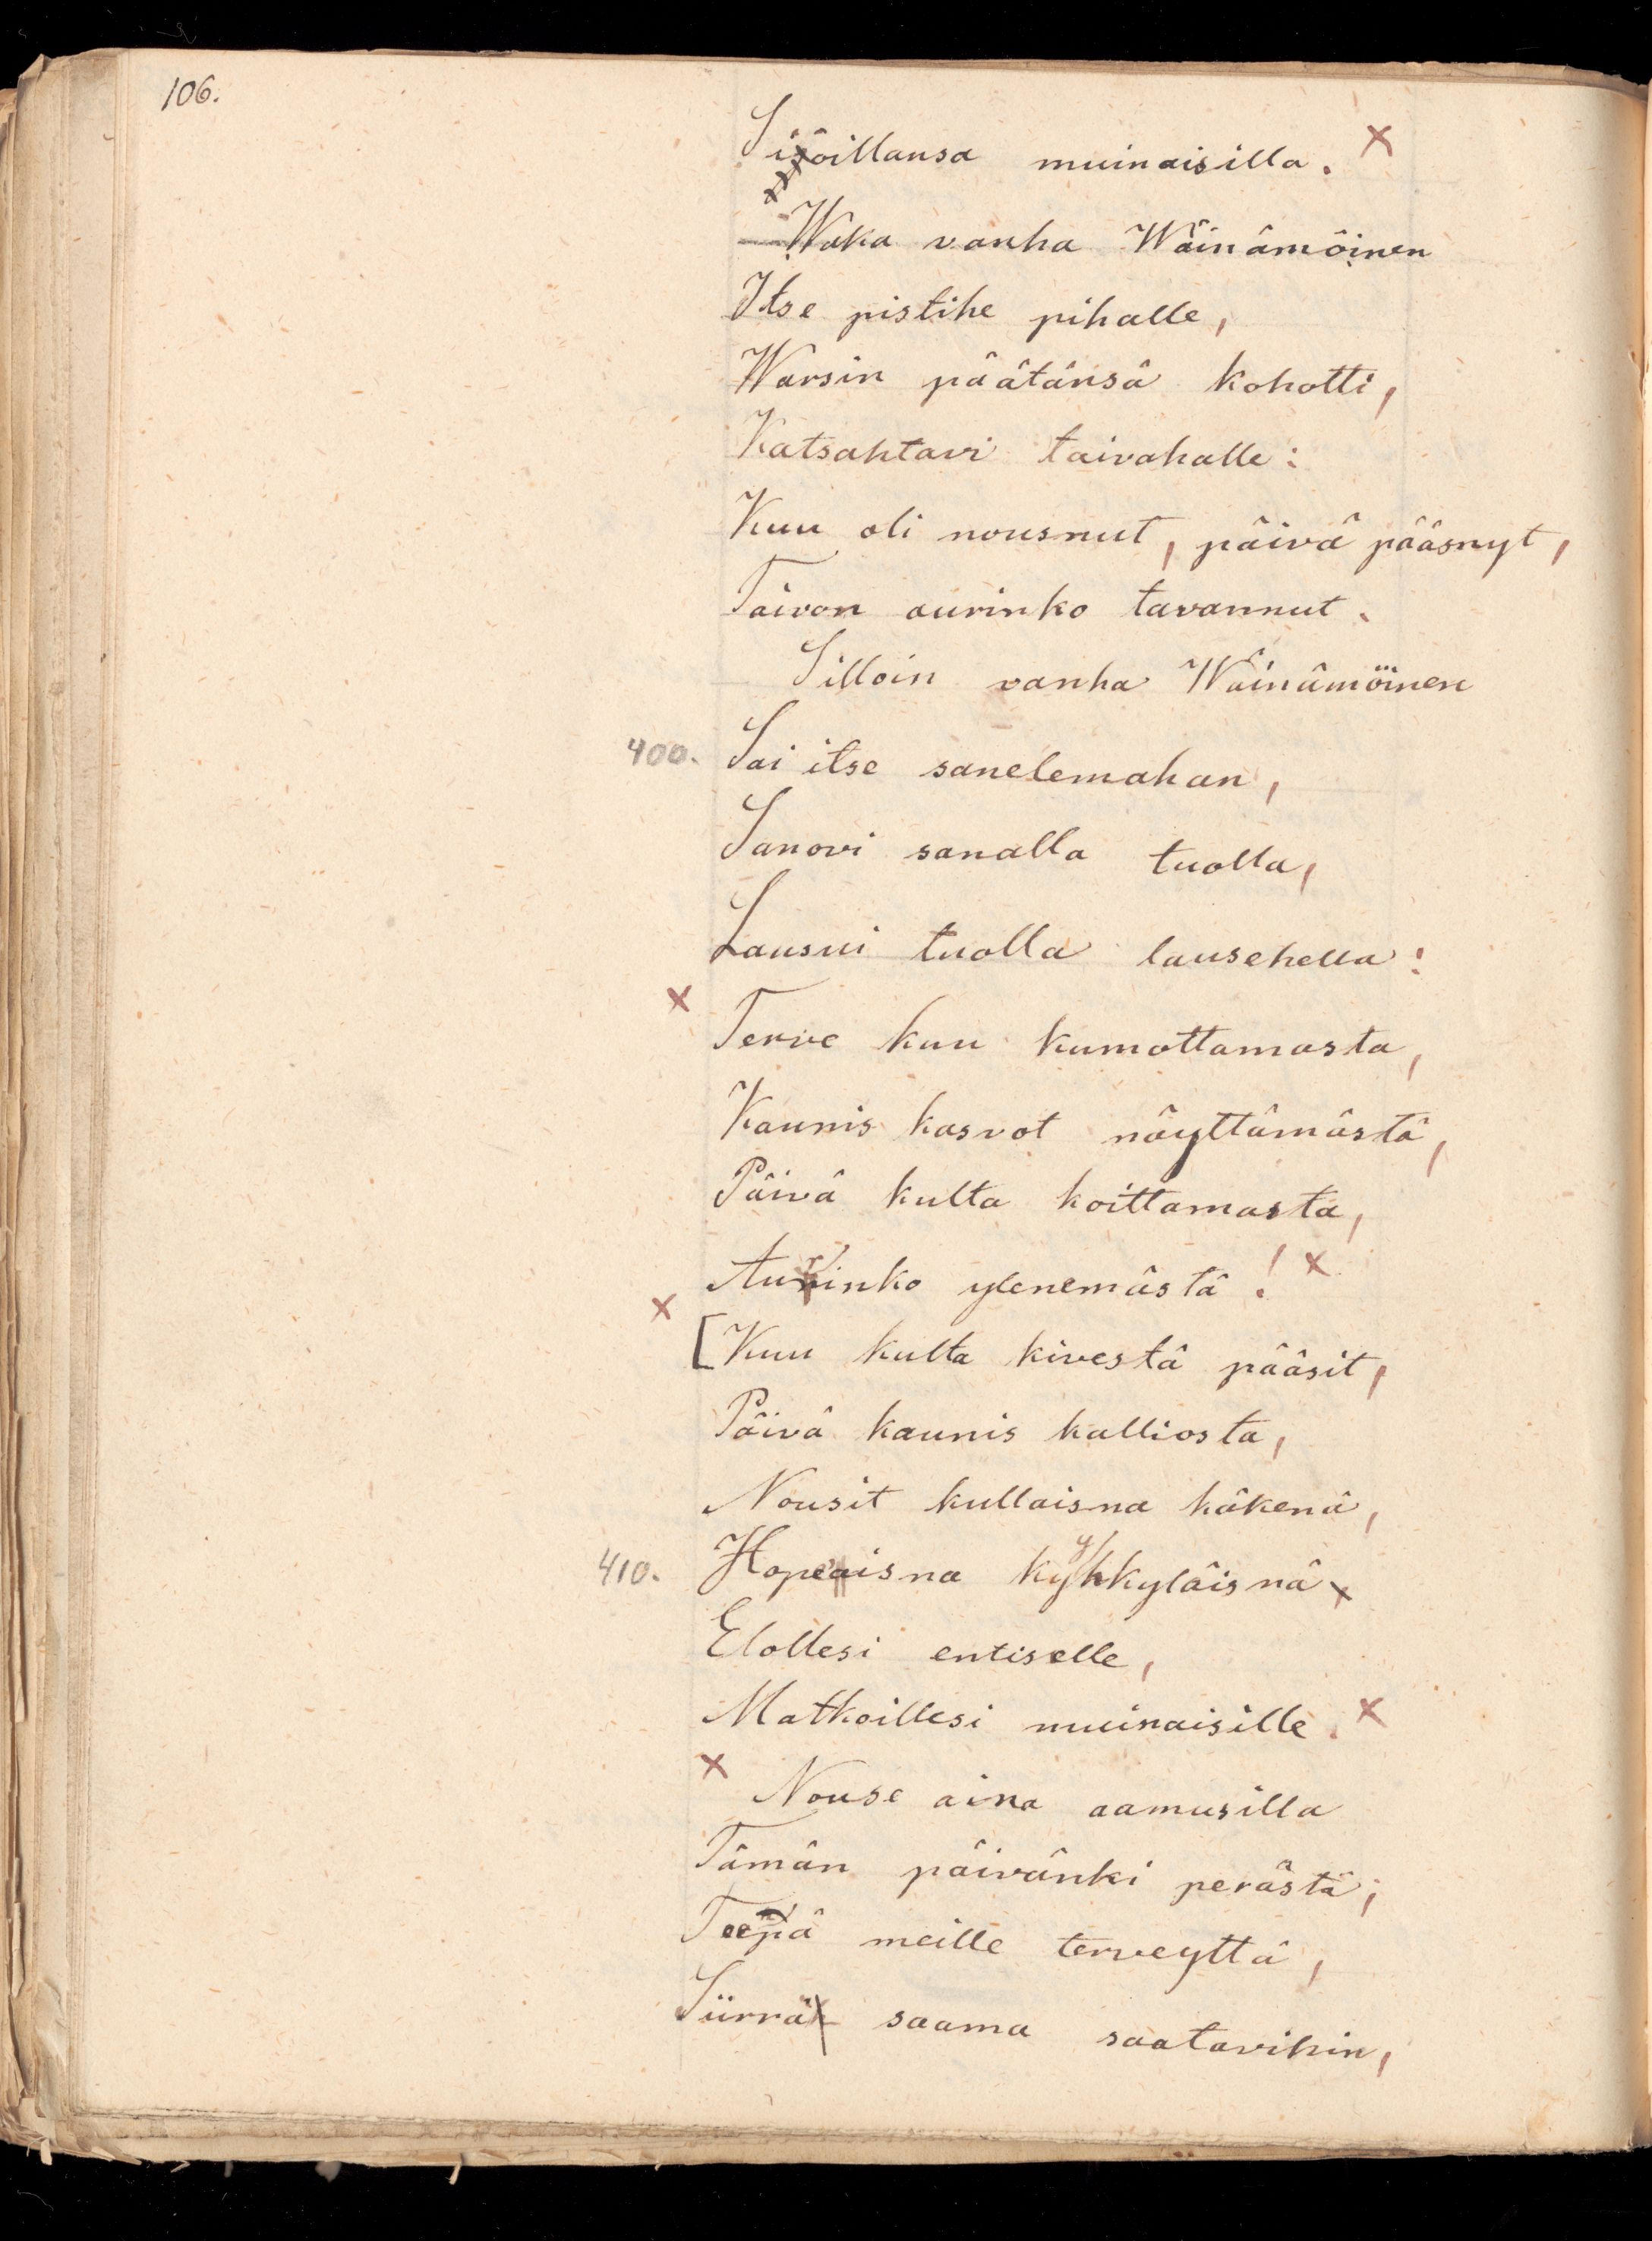 106.
Sijoillansa muinaisilla.
Waka vanha Wäinämöinen
Itse pistihe pihalle,
Warsin päätänsä kohotti,
Katsahtavi taivahalle:
Kuu oli nousnut, päivä pääsnyt,
Taivon aurinko tavannut.
Silloin vanha Wäinämöinen
400. Sai itse sanelemahan,
Sanovi sanalla tuolla,
Lausui tuolla lausehella:
Terve kuu kumottamasta,
Kaunis kasvot näyttämästä,
Päivä kulta koittamasta,
Aurinko ylenemästä!
[Kuu kulta kivestä pääsit,
Päivä kaunis kalliosta,
Nousit kullaisna käkenä,
410. Hopeaisna kyyhkyläisnä
Elollesi entiselle,
Matkoillesi muinaisille.
Nouse aina aamusilla
Tämän päivänki perästä;
Teepä meille terveyttä,
Siirrä saama saatavihin,